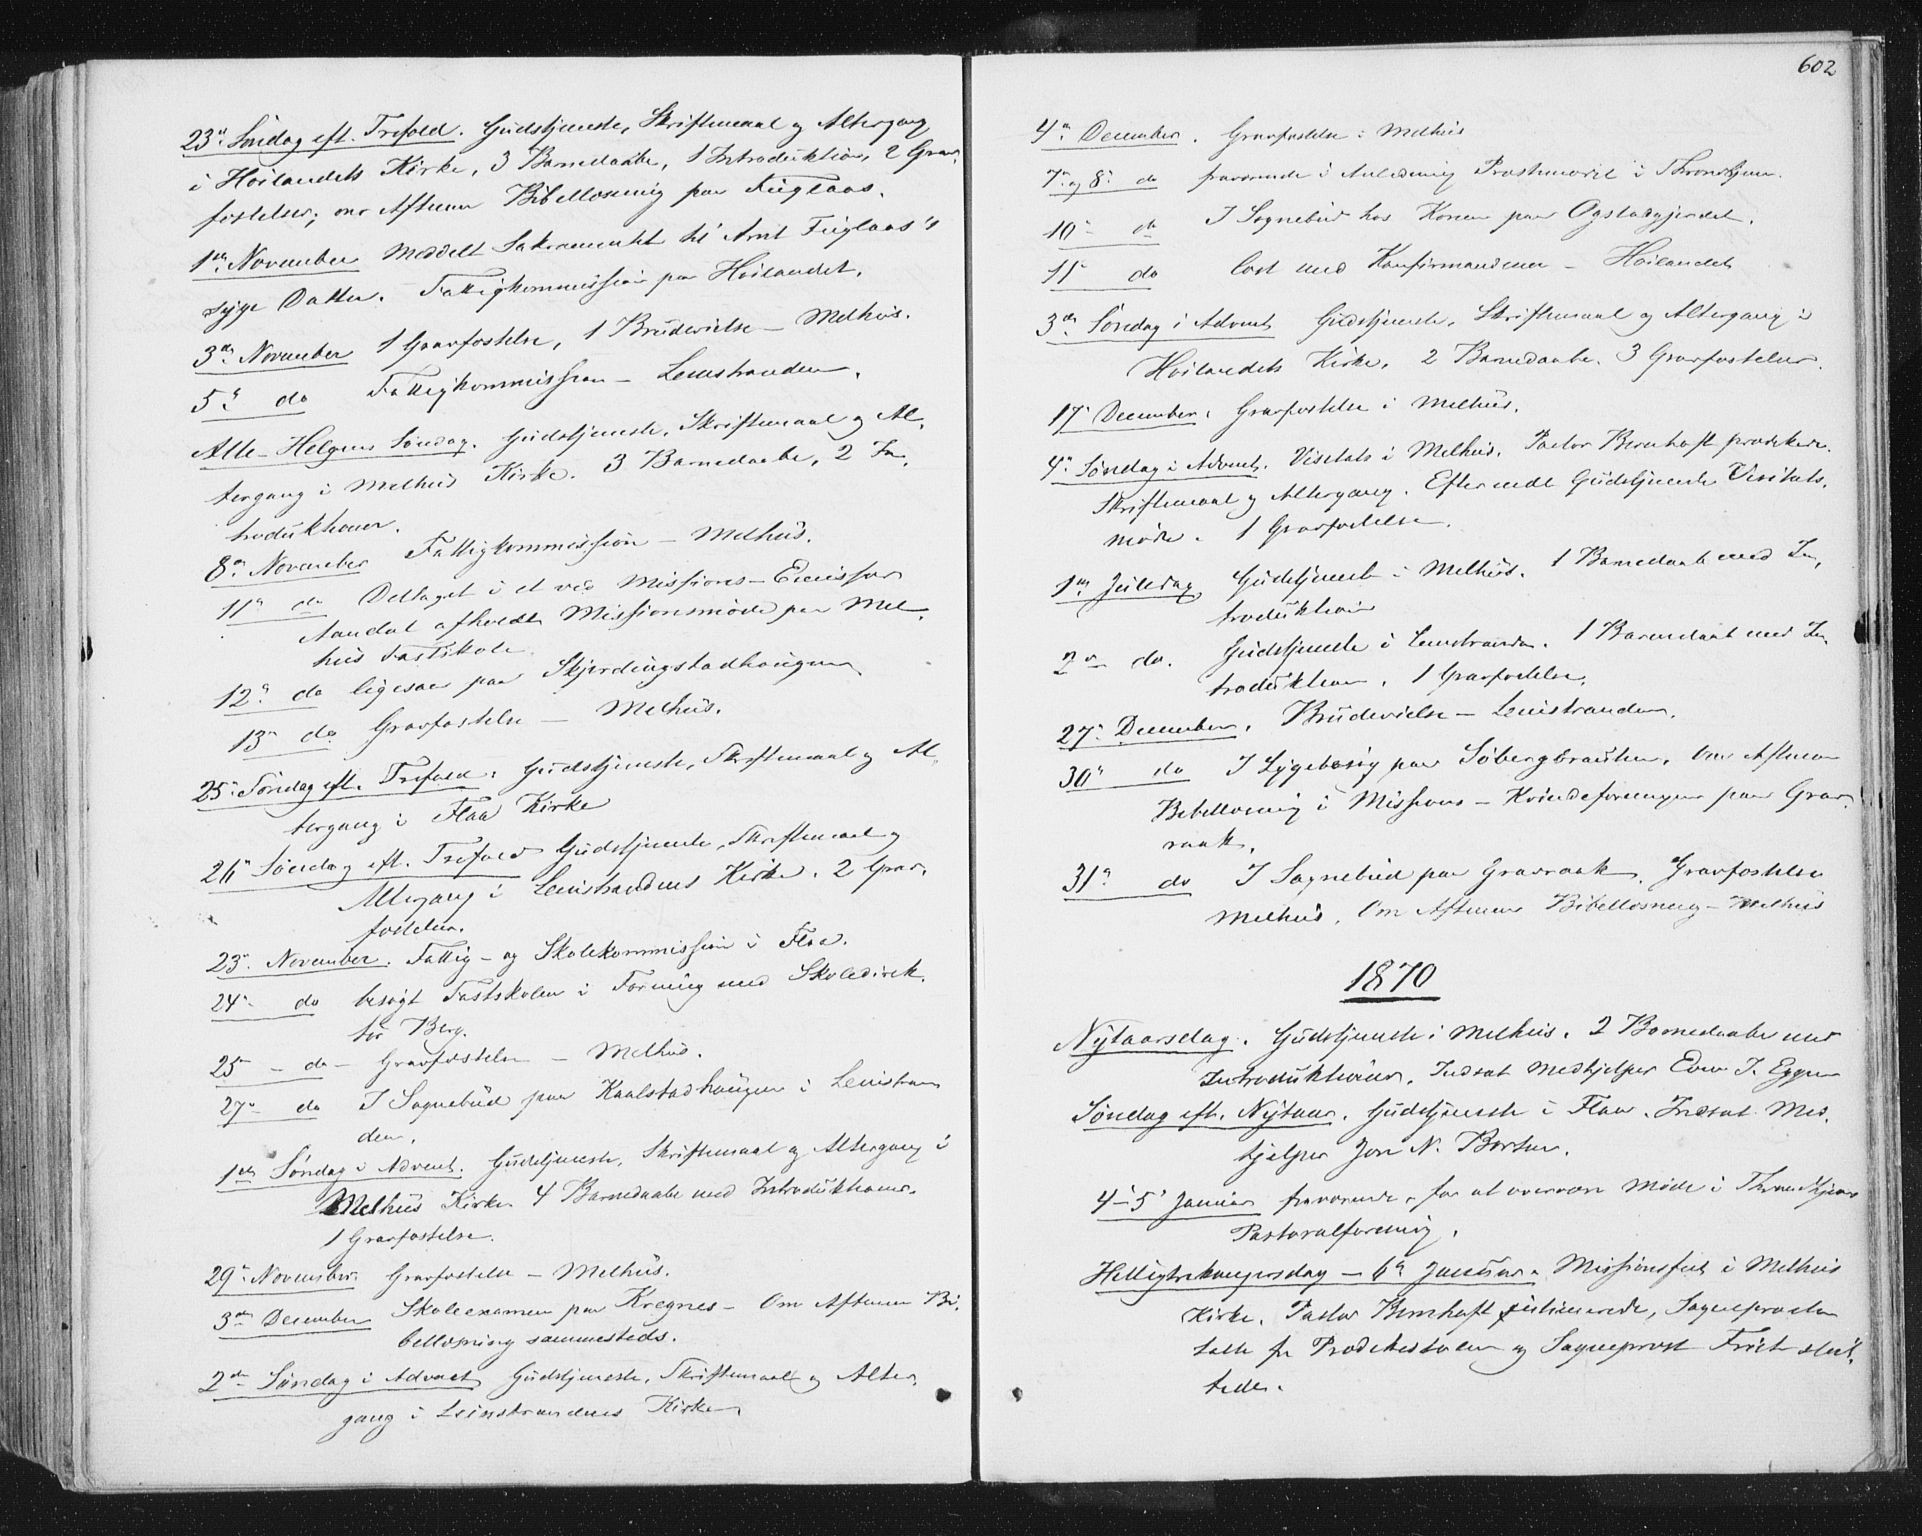 23de Søndag eft. Trefold. Gudstjeneste, Skriftemaal og Altergang
i Høilandets Kirke, 3 Barnedaabe, 1 Introduktion, 2 Grav-
fæstelser; om Aftenen Bibellæsning paa Fuglaas.
1ste November meddelt Sakramentet til Arnt Fuglaas's
syge Datter. Fattigkommission paa Høilandet.
3die November 1 Gravfæstelse, 1 Brudevielse – Melhus.
5te do Fattigkommission – Leinstranden.
Alle-Helgens Søndag. Gudstjeneste, Skriftemaal og Al-
tergang i Melhus Kirke. 3 Barnedaabe, 2 In-
troduktioner.
8de November Fattigkommission – Melhus.
11te do Deltaget i et ved Missions-Emissær
Aandal afholdt Missionsmøde paa Mel-
hus Fastskole
12te do ligesaa paa Skjerdingstadhaugen
13de do Gravfæstelse – Melhus.
25de Søndag eft. Trefold. Gudstjeneste, Skriftemaal og Al-
tergang i Flaa Kirke
26de Søndag eft. Trefold Gudstjeneste, Skriftemaal og
Altergang i Leinstrandens Kirke. 2 Grav-
fæstelser.
23de November. Fattig- og Skolekommission i Flaa.
24de do besøgt Fastskolen i Horning med Skoledirek-
tør Berg.
25de – do – Gravfæstelse – Melhus.
27de do I Sognebud paa Kaalstadhaugen i Leinstran
den.
1ste Søndag i Advent. Gudstjeneste, Skriftemaal og Altergang i
Melhus Kirke 4 Barnedaabe med Introduktioner.
1 Gravfæstelse.
29de November. Gravfæstelse – Melhus.
3die December Skoleexamen paa Kregnes – Om Aftenen Bi-
bellæsning sammesteds.
2den Søndag i Advent Gudstjeneste, Skriftemaal og Alter-
gang i Leinstrandens Kirke
602
4de December. Gravfæstelse i Melhus
7de og 8de do fraværende i Anledning Præstemøde i Throndhjem.
10de do I Sognebud hos Konen paa Øgstadgjerdet.
11te do læst med Konfirmanderne – Høilandet
3die Søndag i Advent Gudstjeneste, Skriftemaal og Altergang i
Høilandets Kirke, 2 Barnedaabe. 3 Gravfæstelser.
17de December. Gravfæstelse i Melhus.
4de Søndag i Advent. Visitats i Melhus. Pastor Bernhoft prædikede.
Skriftemaal og Altergang. Efter endt Gudstjeneste Visitats-
møde. 1 Gravfæstelse.
1ste Juledag Gudstjeneste i Melhus. 1 Barnedaab med In-
troduktion
2den do. Gudstjeneste i Leinstranden. 1 Barnedaab med In-
troduktion. 1 Gravfæstelse.
27de December. Brudevielse – Leinstranden.
30te do I Sygebesøg paa Søbergbrauten. Om Aftenen
Bibellæsning i Missions-Kvindeforeningen paa Grav-
raak.
31te do I Sognebud paa Gravraak. Gravfæstelse
Melhus. Om Aftenen Bibellæsning – Melhus
1870
Nytaarsdag. Gudstjeneste i Melhus. 2 Barnedaabe med
Introduktioner. Indsat Medhjelper Even J. Eggen
Søndag eft. Nytaar. Gudstjeneste i Flaa. Indsat Med-
hjelper Jon N. Borten.
4-5te Januar fraværende for at overvære Møde i Throndhjems
Pastoralforening.
Helligtrekongersdag – 6te Januar. Missionsfest i Melhus
Kirke. Pastor Bernhoft intimerede, Sognepræsten
talte fra Prædikestolen og Sogneprest Friis slut-
tede.